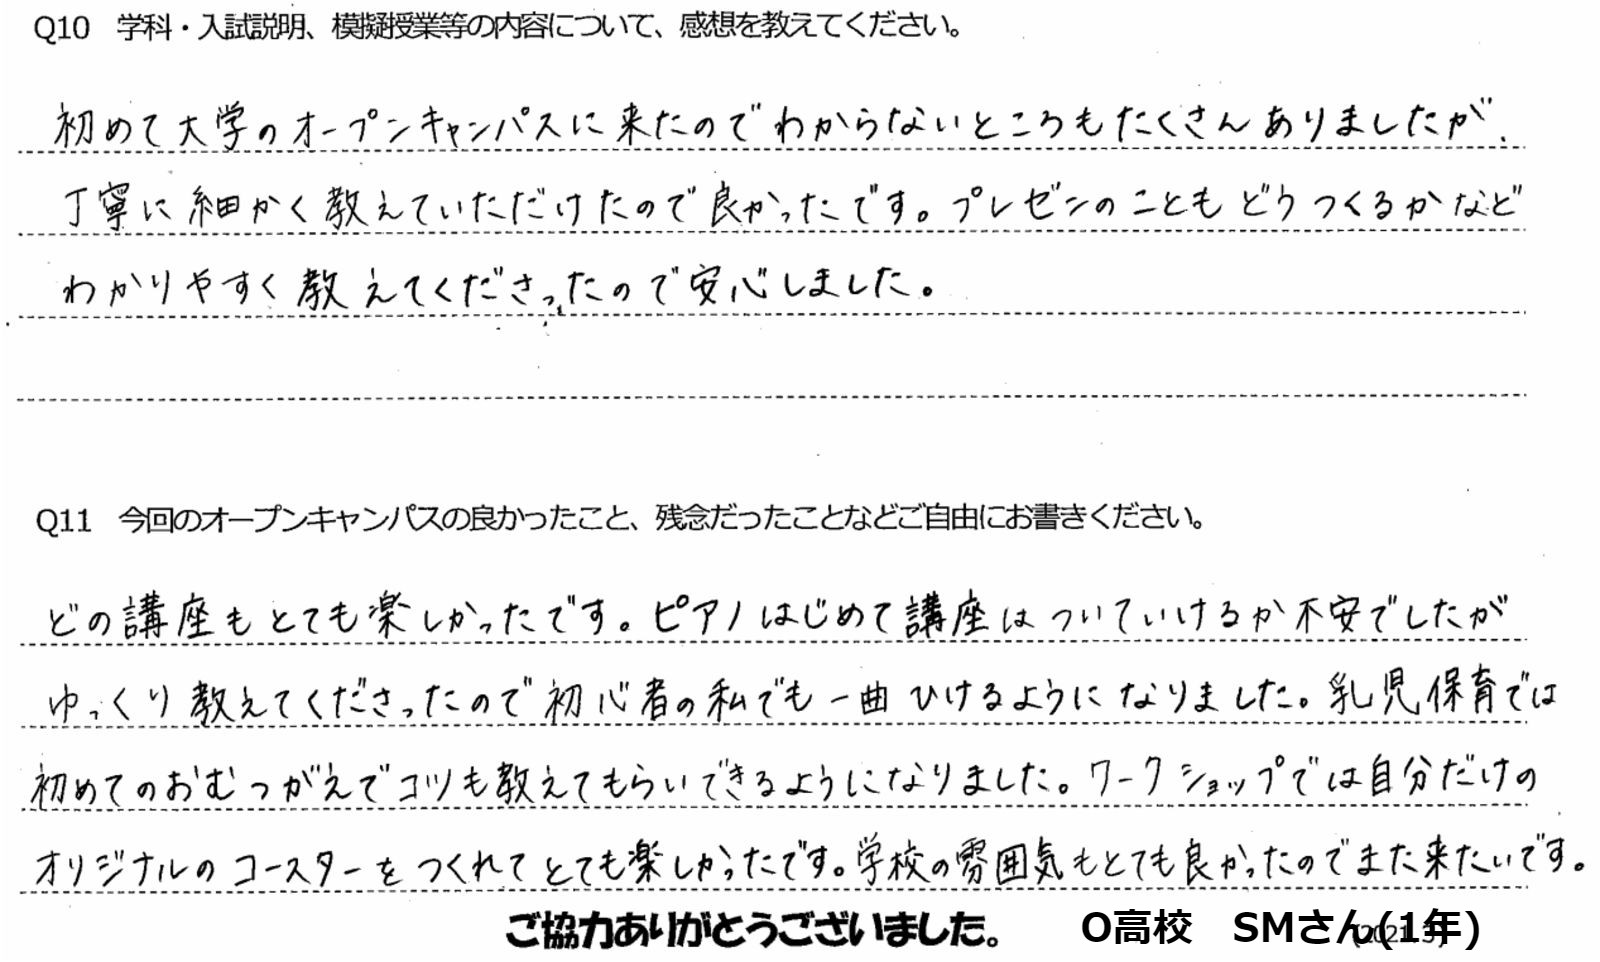 Q10　学科・入試説明、模擬授業等の内容について、感想を教えてください。
初めて大学のオープンキャンパスに来たのでわからないところもたくさんありましたが、
丁寧に細かく教えていただけたので良かったです。プレゼンのこともどうつくるかなど
わかりやすく教えてくださったので安心しました。
Q11　今回のオープンキャンパスの良かったこと、残念だったことなどご自由にお書きください。
どの講座もとても楽しかったです。ピアノはじめて講座はついていけるか不安でしたが
ゆっくり教えてくださったので初心者の私でも一曲ひけるようになりました。乳児保育では
初めてのおむつがえでコツも教えてもらいできるようになりました。ワークショップでは自分だけの
オリジナルのコースターをつくれてとても楽しかったです。学校の雰囲気もとても良かったのでまた来たいです。
ご協力ありがとうございました。
O高校　SMさん(1年)